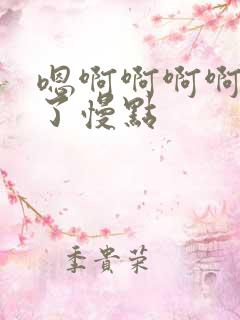 嗯啊啊啊啊
了慢點
季貴荣